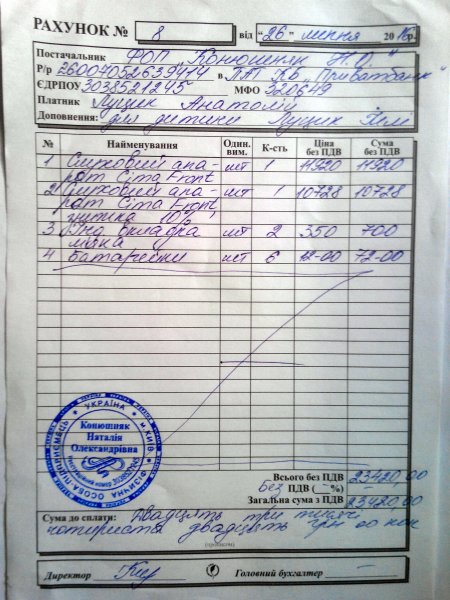 РАХУНОК № 8 від "26" липня 2016р.
Постачальник ФОП "Конюшняк Н.О."
Р/р 26004052639414 в ПАТ КБ "Приватбанк"
ЄДРПОУ 3038521245 МФО 320649
Платник Луцик Анатолій
Доповнення: для дитини Луцик
№ Найменування Один. вим. К-сть Ціна без ПДВ Сума без ПДВ
1 Слуховий апа- шт 1 11920 11920
рат Cima Front
2 Слуховий апа- шт 1 10728 10728
рат Cima Front
знижка 10%
3 Інд. вкладка шт 2 350 700
мяка
4 Батарейки шт 6 12-00 72-00
УКРАЇНА * м. КИЇВ * ФІЗИЧНА ОСОБА-ПІДПРИЄМЕЦЬ
Конюшняк
Наталія
Олександрівна
Всього без ПДВ 23420,00
Без ПДВ ( %) –
Загальна сума з ПДВ 23420,00
Сума до сплати: двадцять три тисячі
чотириста двадцять грн 00 коп
(прописом)
Директор Головний бухгалтер –